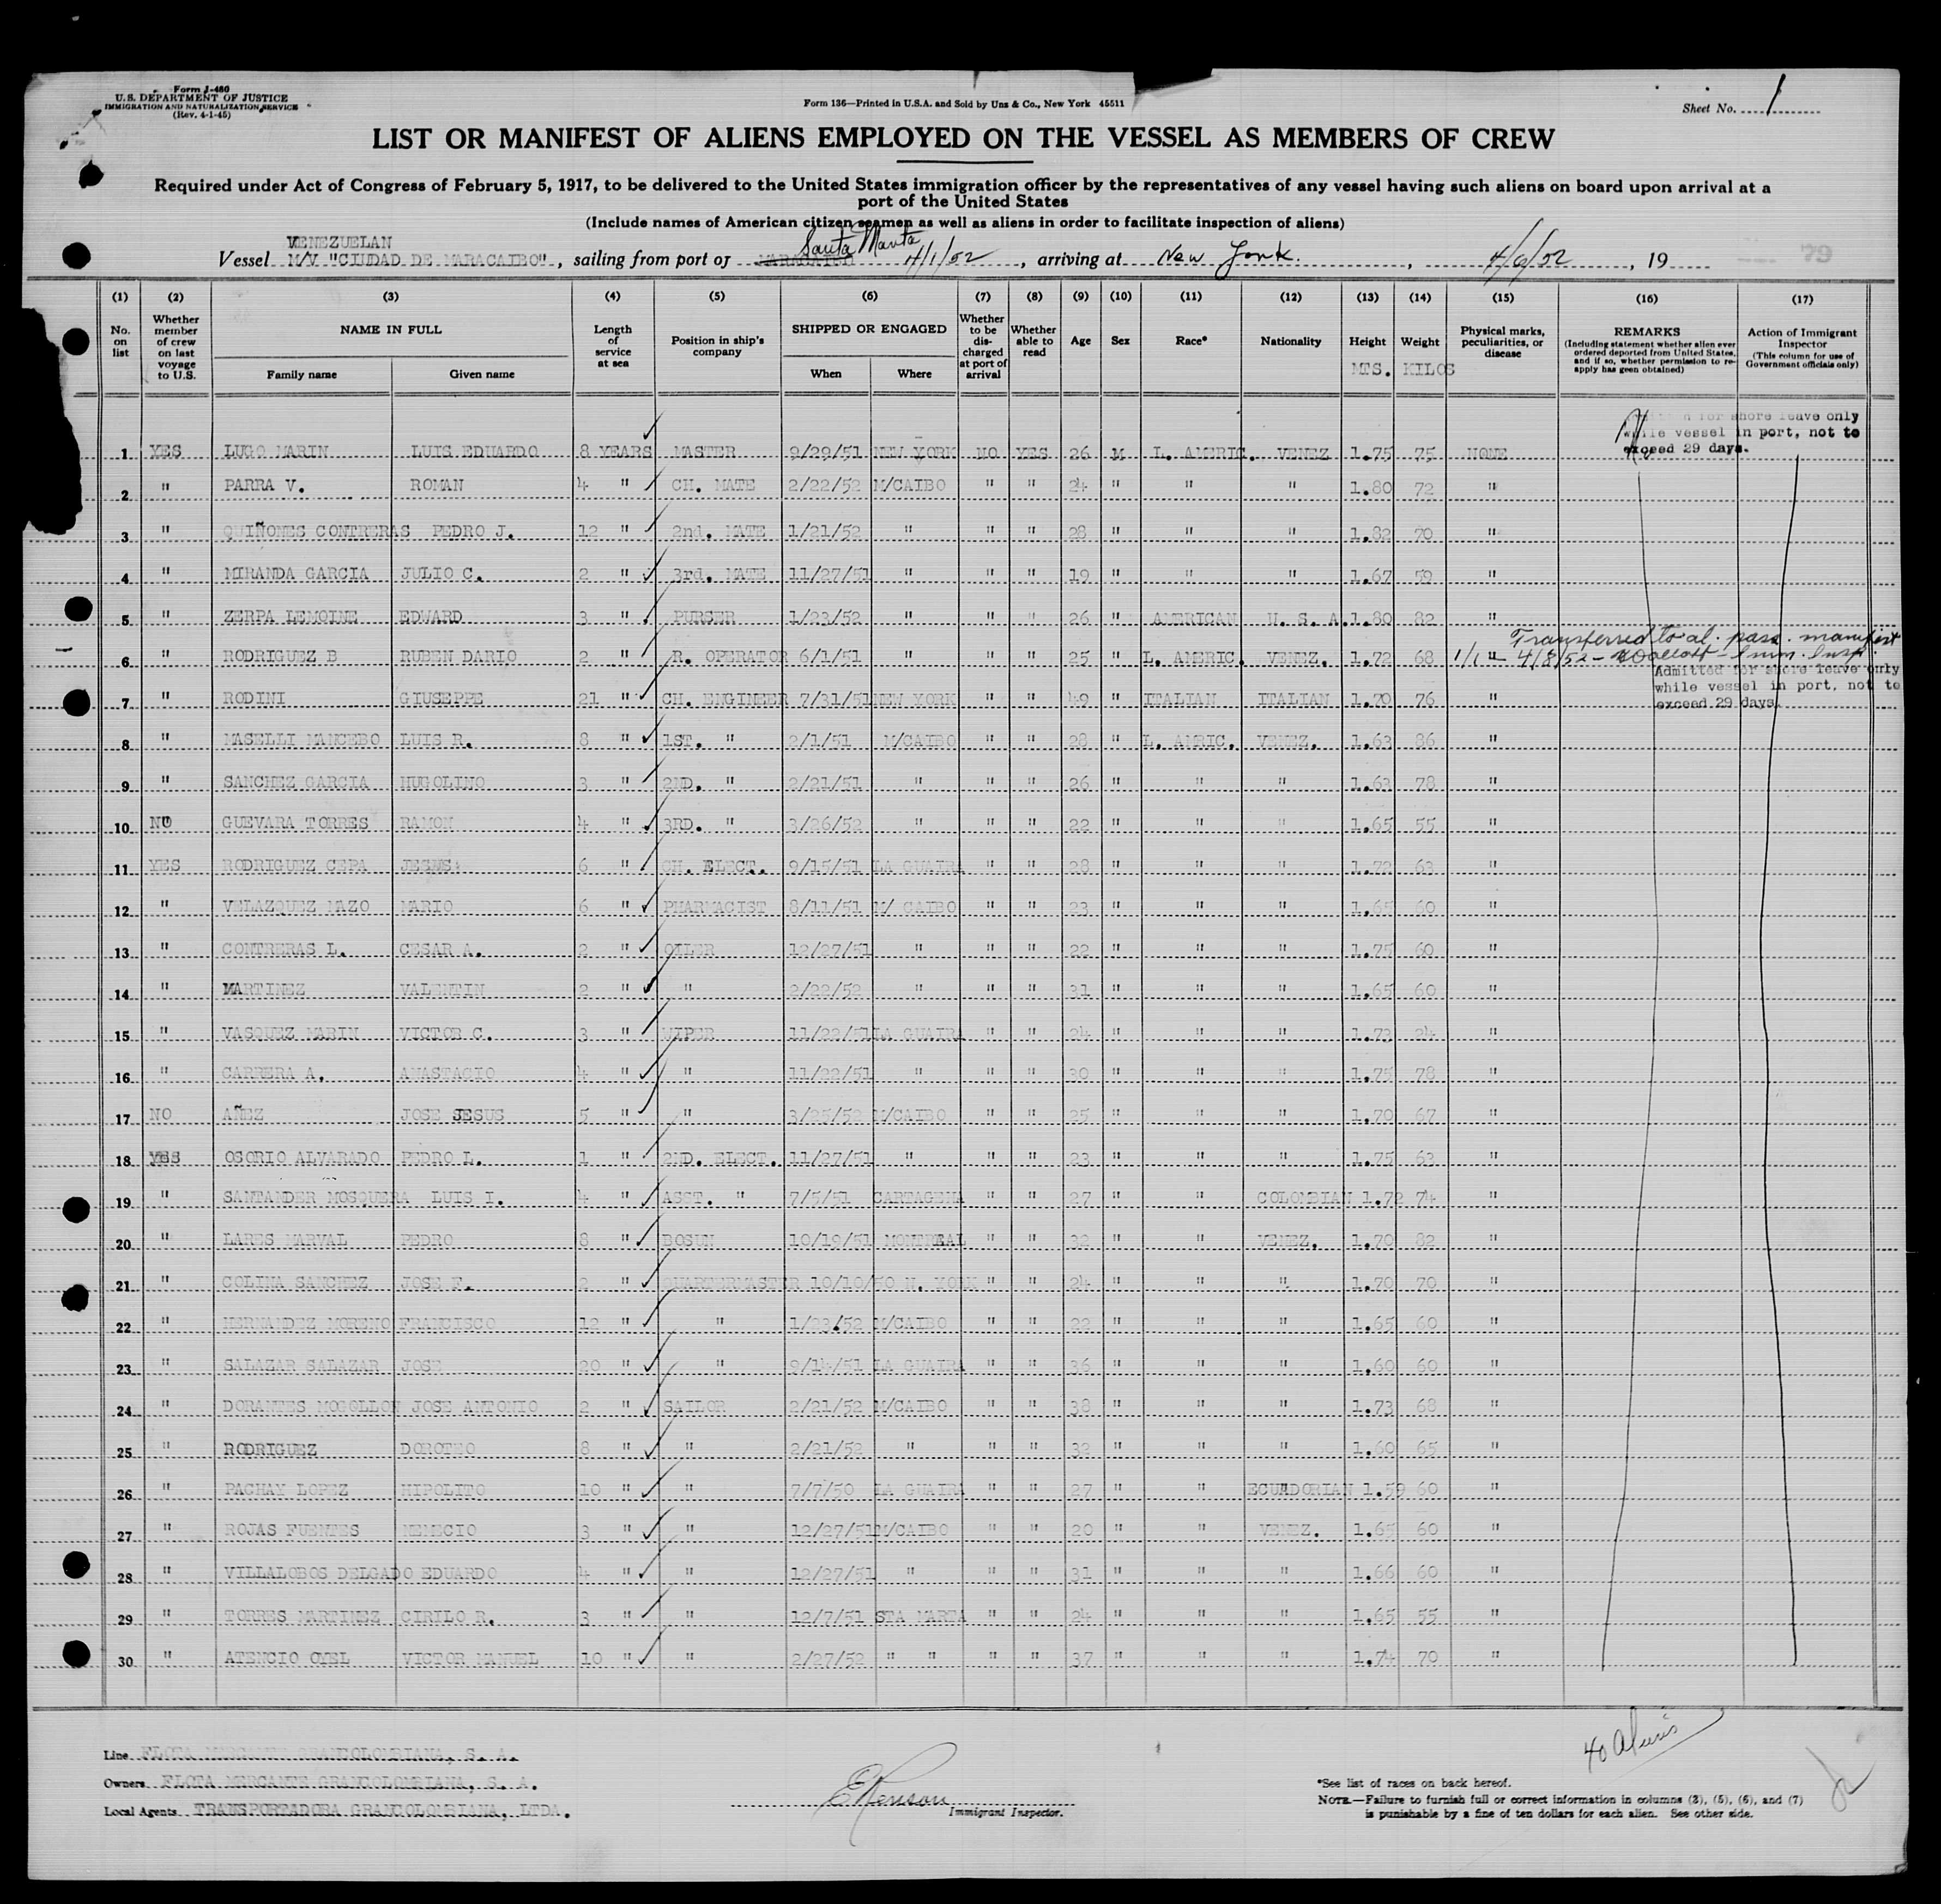 Form I-480
U.S. DEPARTMENT OF JUSTICE
IMMIGRATION AND NATURALIZATION SERVICE
(Rev. 4-1-45)
Form 136—Printed in U.S.A. and Sold by Unz & Co., New York 45511
Sheet No. 1
LIST OR MANIFEST OF ALIENS EMPLOYED ON THE VESSEL AS MEMBERS OF CREW
Required under Act of Congress of February 5, 1917, to be delivered to the United States immigration officer by the representatives of any vessel having such aliens on board upon arrival at a
port of the United States
(Include names of American citizen seamen as well as aliens in order to facilitate inspection of aliens)
VENEZUELAN
Vessel M/V "CIUDAD DE MARACAIBO", sailing from port of Santa Marta 4/1/52, arriving at New York., 4/6/52, 19 79
(1) (2) (3) (4) (5) (6) (7) (8) (9) (10) (11) (12) (13) (14) (15) (16) (17)
No. on list | Whether member of crew on last voyage to U.S. | NAME IN FULL | Family name | Given name | Length of service at sea | Position in ship's company | SHIPPED OR ENGAGED | When | Where | Whether to be discharged at port of arrival | Whether able to read | Age | Sex | Race* | Nationality | Height MTS. | Weight KILOS | Physical marks, peculiarities, or disease | REMARKS (Including statement whether alien ever ordered deported from United States, and if so, whether permission to re-apply has been obtained) | Action of Immigrant Inspector (This column for use of Government officials only)
for shore leave only
while vessel in port, not to
exceed 29 days.
1 YES LUGO MARIN LUIS EDUARDO 8 YEARS MASTER 9/29/51 NEW YORK NO YES 26 M L. AMERIC. VENEZ 1.75 75 NONE
2 " PARRA V. ROMAN 4 " CH. MATE 2/22/52 M/CAIBO " " 24 " " " 1.80 72 "
3 " QUIÑONES CONTRERAS PEDRO J. 12 " 2nd. MATE 1/21/52 " " " 28 " " " 1.82 70 "
4 " MIRANDA GARCIA JULIO C. 2 " 3rd. MATE 11/27/51 " " " 19 " " " 1.67 59 "
5 " ZERPA LEMOINE EDWARD 3 " PURSER 1/23/52 " " " 26 " AMERICAN U. S. A. 1.80 82 "
Transferred to al. pass. manifest
6 " RODRIGUEZ B RUBEN DARIO 2 " R. OPERATOR 6/1/51 " " " 25 " L. AMERIC. VENEZ. 1.72 68 " 4/8/52 - Imm. Insp.
Admitted for shore leave only
while vessel in port, not to
exceed 29 days.
7 " RODINI GIUSEPPE 21 " CH. ENGINEER 7/31/51 NEW YORK " " 49 " ITALIAN ITALIAN 1.70 76 "
8 " MASELLI MANCEBO LUIS R. 8 " 1ST. " 2/1/51 M/CAIBO " " 28 " L. AMRIC. VENEZ. 1.63 86 "
9 " SANCHEZ GARCIA HUGOLINO 3 " 2ND. " 2/21/51 " " " 26 " " " 1.63 78 "
10 NO GUEVARA TORRES RAMON 4 " 3RD. " 3/26/52 " " " 22 " " " 1.65 55 "
11 YES RODRIGUEZ CEPA JESUS 6 " CH. ELECT. 9/15/51 LA GUAIRA " " 28 " " " 1.72 63 "
12 " VELAZQUEZ MAZO MARIO 6 " PHARMACIST 8/11/51 M/ CAIBO " " 23 " " " 1.65 60 "
13 " CONTRERAS L. CESAR A. 2 " OILER 12/27/51 " " " 22 " " " 1.75 60 "
14 " MARTINEZ VALENTIN 2 " " 2/22/52 " " " 31 " " " 1.65 60 "
15 " VASQUEZ MARIN VICTOR C. 3 " WIPER 11/22/51 LA GUAIRA " " 24 " " " 1.73 24 "
16 " CARRERA A. ANASTACIO 4 " " 11/22/51 " " " 30 " " " 1.75 78 "
17 NO AÑEZ JOSE JESUS 5 " " 3/25/52 M/CAIBO " " 25 " " " 1.70 67 "
18 YES OSORIO ALVARADO PEDRO L. 1 " 2ND. ELECT. 11/27/51 " " " 23 " " " 1.75 63 "
19 " SANTANDER MOSQUERA LUIS I. 4 " ASST. " 7/5/51 CARTAGENA " " 27 " " COLOMBIAN 1.72 74 "
20 " LARES MARVAL PEDRO 8 " BOSUN 10/19/51 MONTREAL " " 32 " " VENEZ. 1.70 82 "
21 " COLINA SANCHEZ JOSE F. 2 " QUARTERMASTER 10/10/50 N. YORK " " 24 " " " 1.70 70 "
22 " HERNANDEZ MORENO FRANCISCO 12 " " 1/23/52 M/CAIBO " " 22 " " " 1.65 60 "
23 " SALAZAR SALAZAR JOSE 20 " " 9/14/51 LA GUAIRA " " 36 " " " 1.60 60 "
24 " DORANTES MOGOLLON JOSE ANTONIO 2 " SAILOR 2/21/52 M/CAIBO " " 38 " " " 1.73 68 "
25 " RODRIGUEZ DOROTEO 8 " " 2/21/52 " " " 32 " " " 1.60 65 "
26 " PACHAY LOPEZ HIPOLITO 10 " " 7/7/50 LA GUAIRA " " 27 " " ECUADORIAN 1.59 60 "
27 " ROJAS FUENTES NEMECIO 3 " " 12/27/51 M/CAIBO " " 20 " " VENEZ. 1.65 60 "
28 " VILLALOBOS DELGADO EDUARDO 4 " " 12/27/51 " " " 31 " " " 1.66 60 "
29 " TORRES MARTINEZ CIRILO R. 3 " " 12/7/51 STA MARTA " " 24 " " " 1.65 55 "
30 " ATENCIO OYEL VICTOR MANUEL 10 " " 2/27/52 " " " " 37 " " " 1.74 70 "
40 Aliens
Line FLOTA MERCANTE GRANCOLOMBIANA, S. A.
Owners FLOTA MERCANTE GRANCOLOMBIANA, S. A.
Local Agents TRANSPORTADORA GRANCOLOMBIANA, LTDA.
Immigrant Inspector.
*See list of races on back hereof.
NOTE.—Failure to furnish full or correct information in columns (3), (5), (6), and (7)
is punishable by a fine of ten dollars for each alien. See other side.